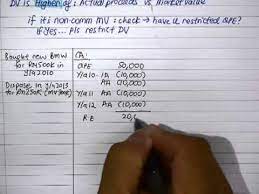 DV is Higher of: Actual proceeds vs Market value
if it's non comm MV: check → have u restricted QPE?
If yes... pls restrict DV
Bought new BMW
for RM500K in
y/a 2010
Dispose in y/a 2013
for RM250K
CA:
QPE 50,000
Y/a 10 - IA (10,000)
AA (10,000)
Y/a 11 AA (10,000)
Y/a 12 AA (10,000)
R.E 20,